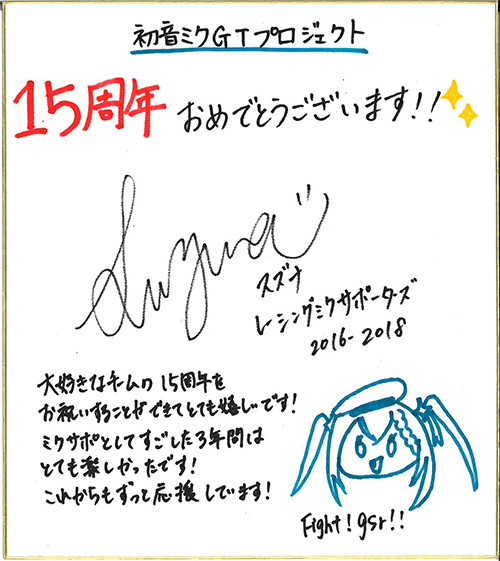 初音ミクGTプロジェクト
15周年 おめでとうございます!!
Suzuna
スズナ
レーシングミクサポーターズ
2016-2018
大好きなチームの15周年を
お祝いすることができてとても嬉しいです!
ミクサポとしてすごした3年間は
とても楽しかったです!
これからもずっと応援しています!
Fight! gsr!!